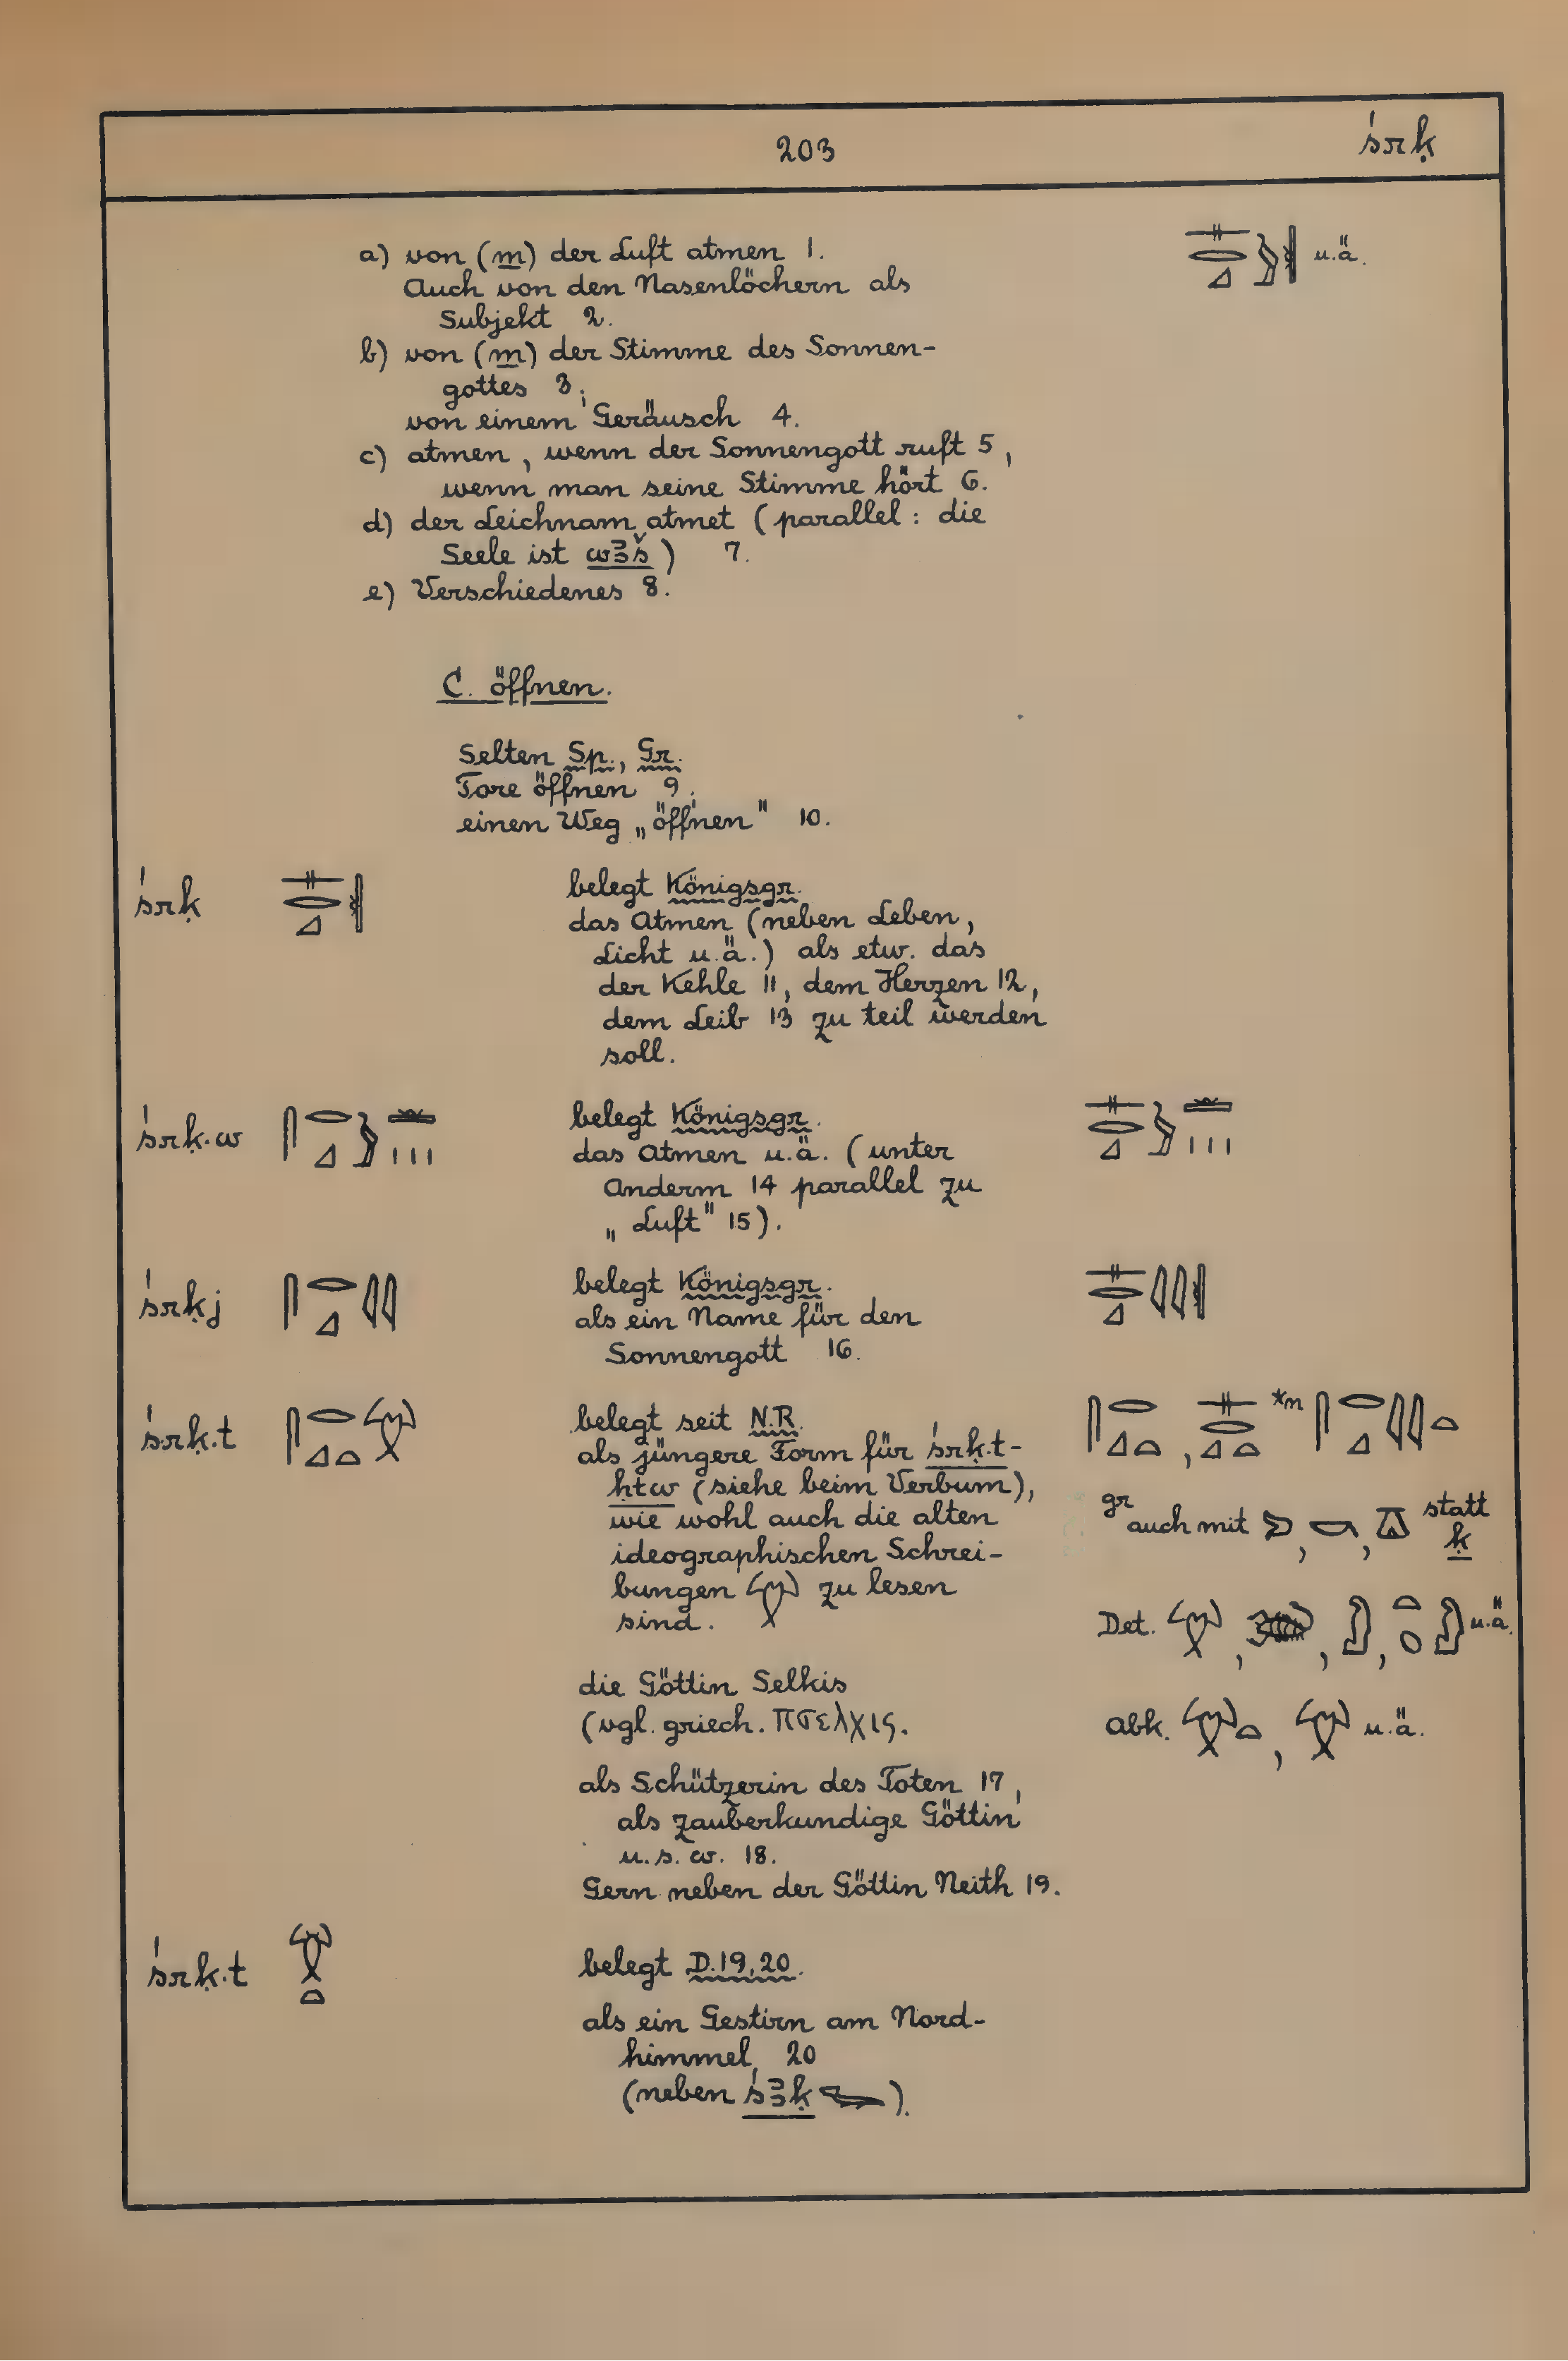 203
śrḳ
a) von (m) der Luft atmen 1.
Auch von den Nasenlöchern als
Subjekt 2.
b) von (m) der Stimme des Sonnen-
gottes 3;
von einem Geräusch 4.
c) atmen, wenn der Sonnengott ruft 5,
wenn man seine Stimme hört 6.
d) der Leichnam atmet (parallel: die
Seele ist wꜣš) 7.
e) Verschiedenes 8.
u.ä.
C. öffnen.
Selten Sp., Gr.
Tore öffnen 9.
einen Weg „öffnen" 10.
śrḳ
belegt Königsgr.
das Atmen (neben Leben,
Licht u.ä.) als etw. das
der Kehle 11, dem Herzen 12,
dem Leib 13 zu teil werden
soll.
śrḳ.w
belegt Königsgr.
das Atmen u.ä. (unter
Anderm 14 parallel zu
„Luft" 15).
śrḳj
belegt Königsgr.
als ein Name für den
Sonnengott 16.
śrḳ.t
belegt seit N.R.
als jüngere Form für śrḳ.t-
ḥtw (siehe beim Verbum),
wie wohl auch die alten
ideographischen Schrei-
bungen zu lesen
sind.
die Göttin Selkis
(vgl. griech. Πσελχις.
als Schützerin des Toten 17,
als zauberkundige Göttin
u.s.w. 18.
Gern neben der Göttin Neith 19.
*n
gr auch mit , , statt
ḳ
Det. , , , u.ä.
Abk. , u.ä.
śrḳ.t
belegt D.19,20.
als ein Gestirn am Nord-
himmel 20
(neben śꜣḳ ).